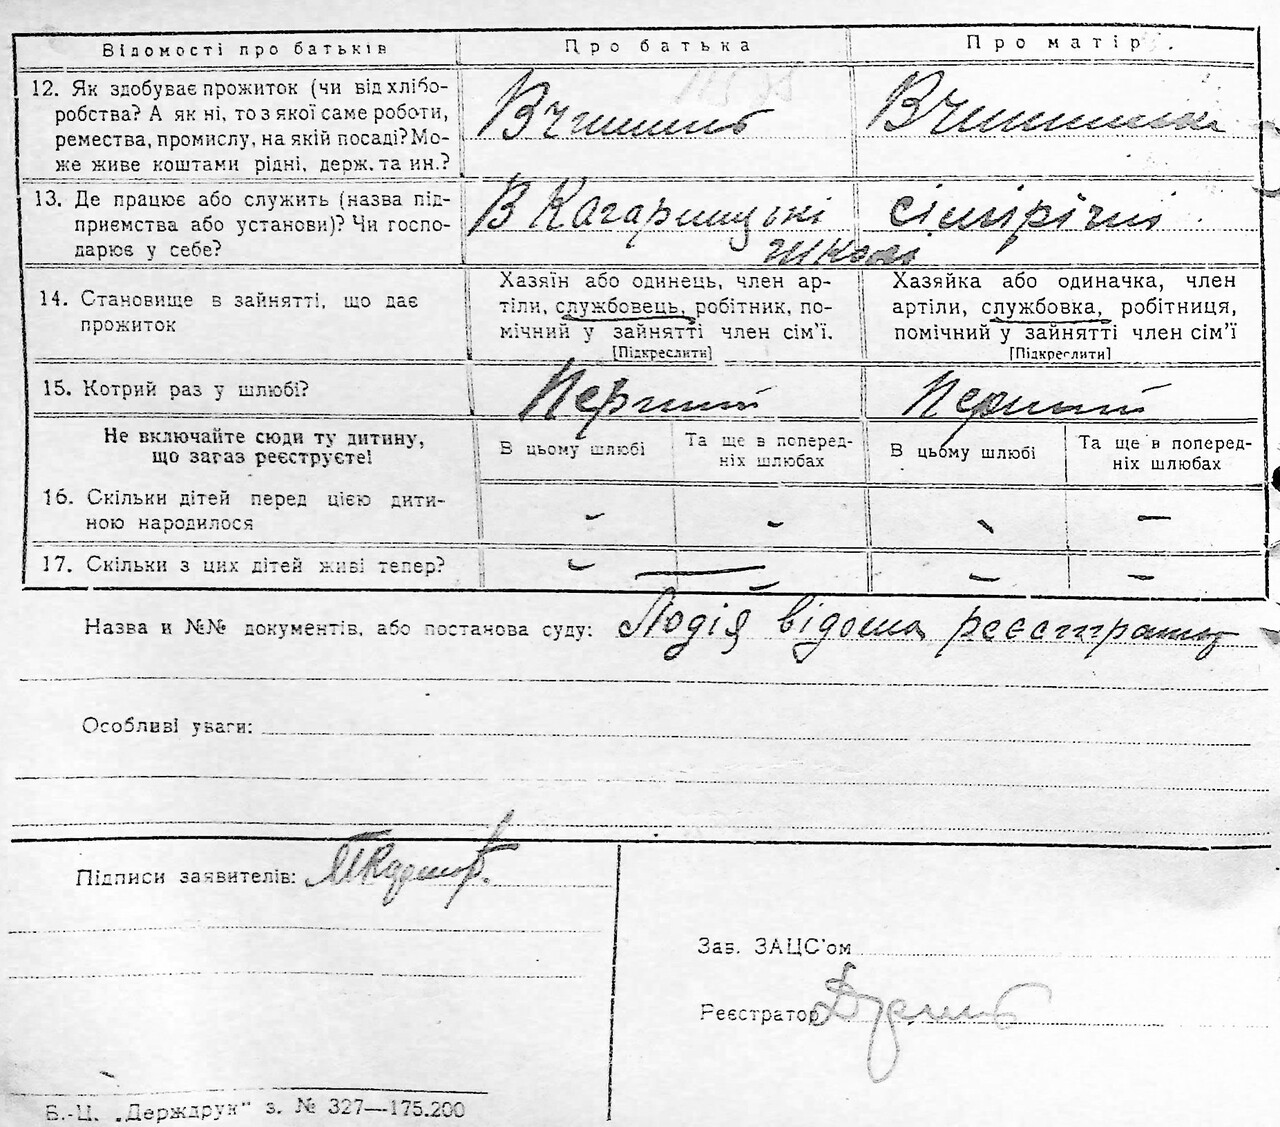 Відомості про батьків Про батька Про матір
12. Як здобуває прожиток (чи від хлібо-
робства? А як ні, то з якої саме роботи,
ремества, промислу, на якій посаді? Мо-
же живе коштами рідні, держ. та ин.?
Вчитель
Вчителька
13. Де працює або служить (назва під-
приємства або установи)? Чи госпо-
дарює у себе?
В Кагарлицькі
школі
семірічні
14. Становище в зайнятті, що дає
прожиток
Хазяїн або одинець, член ар-
тіли, службовець, робітник, по-
мічний у зайнятті член сім'ї.
[Підкреслити]
Хазяйка або одиначка, член
артіли, службовка, робітниця,
помічний у зайнятті член сім'ї
[Підкреслити]
15. Котрий раз у шлюбі?
Перший
Перший
Не включайте сюди ту дитину,
що загаз реєструєте!
В цьому шлюбі
Та ще в поперед-
ніх шлюбах
В цьому шлюбі
Та ще в поперед-
ніх шлюбах
16. Скільки дітей перед цією дити-
ною народилося
- - - -
17. Скільки з цих дітей живі тепер?
- - - -
Назва и №№ документів, або постанова суду: Подія відома реєстратору
Особливі уваги:
Підписи заявителів:
Зав. ЗАЦС'ом
Реєстратор
Б.-Ц. „Держдрук" з. № 327—175.200